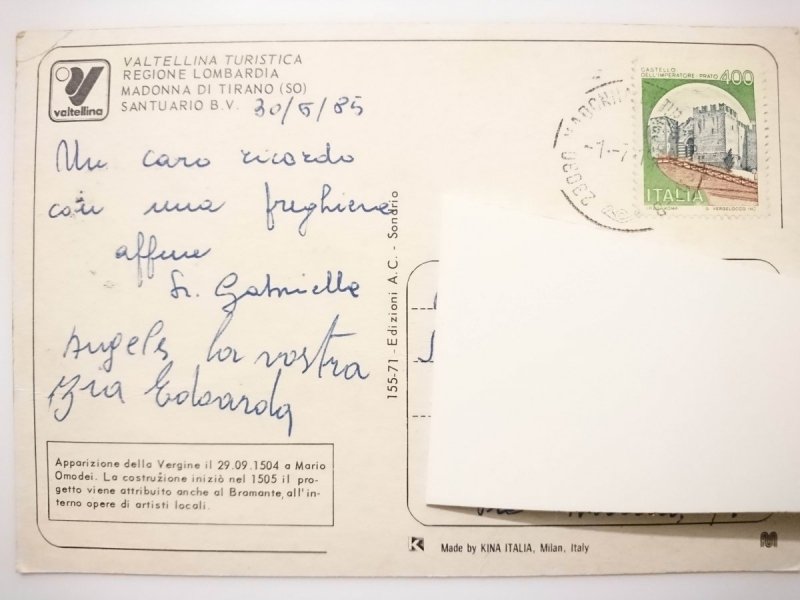 VALTELLINA TURISTICA
REGIONE LOMBARDIA
MADONNA DI TIRANO (SO)
SANTUARIO B.V.
valtellina
30/6/85
Un caro ricordo
con una preghiera
affine
Sr. Gabriella
Angela, la vostra
Zia Edoarda
Apparizione della Vergine il 29.09.1504 a Mario
Omodei. La costruzione iniziò nel 1505 il pro-
getto viene attribuito anche al Bramante, all'in-
terno opere di artisti locali.
155-71 - Edizioni A.C. - Sondrio
CASTELLO
DELL'IMPERATORE - PRATO
400
ITALIA
23030 MADONNA
Made by KINA ITALIA, Milan, Italy